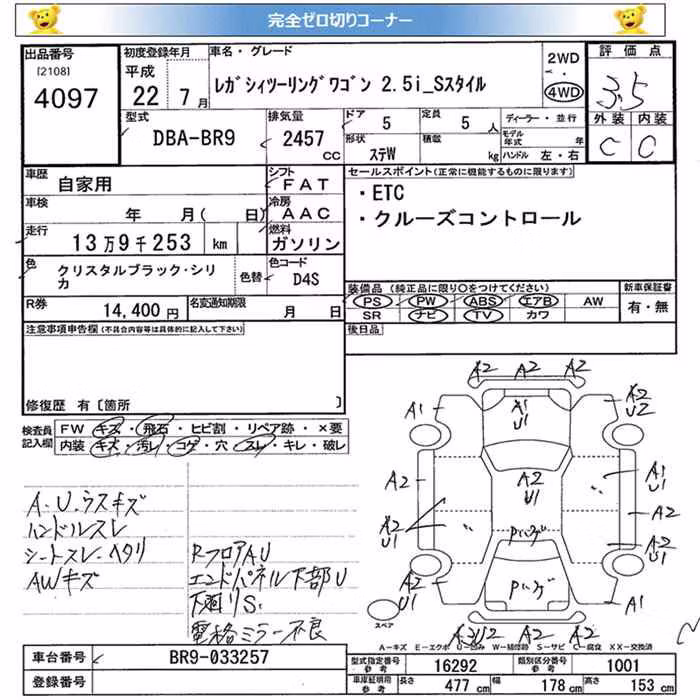 完全ゼロ切りコーナー
出品番号
[2108]
4097
初度登録年月
平成
22 7月
車名・グレード
レガシィツーリングワゴン 2.5i_Sスタイル
2WD
・
4WD
評価点
3.5
外装 内装
C C
型式
DBA-BR9
排気量
2457
cc
ドア
5
定員
5 人
形状
ステW
積載
kg
ディーラー・並行
モデル年式 年
ハンドル 左・右
車歴
自家用
シフト
FAT
車検
年 月( 日)
冷房
AAC
走行
13万9千253 km
燃料
ガソリン
色
クリスタルブラック・シリカ
色替
色コード
D4S
R券
14,400円
名変通知期限
月 日
セールスポイント(正常に機能するものに限ります)
・ETC
・クルーズコントロール
装備品 (純正品に限り○をつけてください)
PS PW ABS エアB AW
SR ナビ TV カワ
新車保証書
有・無
後日品
注意事項申告欄(不具合内容等は具体的に記入して下さい)
修復歴 有〔箇所 〕
検査員記入欄
FW キズ・飛石・ヒビ割・リペア跡・×要
内装 キズ・汚レ・コゲ・穴・スレ・キレ・破レ
A.U.ウスキズ
ハンドルスレ
シートスレ・ヘタリ
AWキズ
RフロアAU
エンドパネル下部U
下廻りS.
電格ミラー不良
A2 A2 A2
A1
A1
U1
A2
U2
A2
A2
U1
A1
U1
A2
A2
U1
Pハゲ
A2
U1
A2
U1
Pハゲ
A1
A3U2 A2 A2
スペア
A-キズ E-エクボ U-凹み W-補修跡 S-サビ C-腐食 XX-交換済
車台番号
BR9-033257
登録番号
型式指定番号
参考
16292
類別区分番号
参考
1001
車庫証明用
参考
長さ 477 cm
幅 178 cm
高さ 153 cm